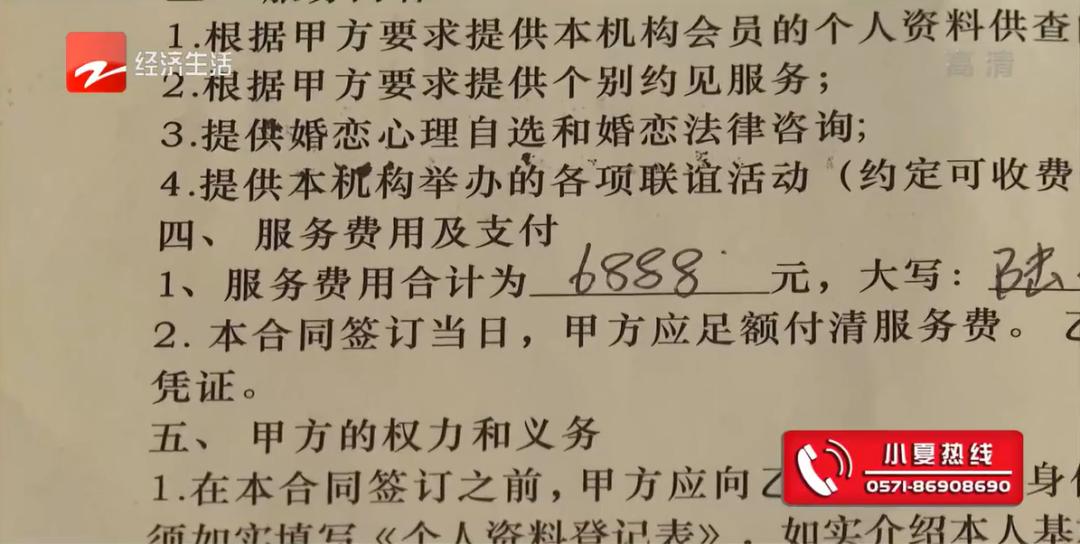 1.根据甲方要求提供本机构会员的个人资料供查
经济生活
高清
2.根据甲方要求提供个别约见服务；
3.提供婚恋心理自选和婚恋法律咨询;
4.提供本机构举办的各项联谊活动（约定可收费
四、 服务费用及支付
1、服务费用合计为 6888 元，大写：陆
2. 本合同签订当日，甲方应足额付清服务费。
凭证。
五、 甲方的权力和义务
小夏热线
0571-86908690
1.在本合同签订之前，甲方应向乙 身
须如实填写《个人资料登记表》，如实介绍本人基